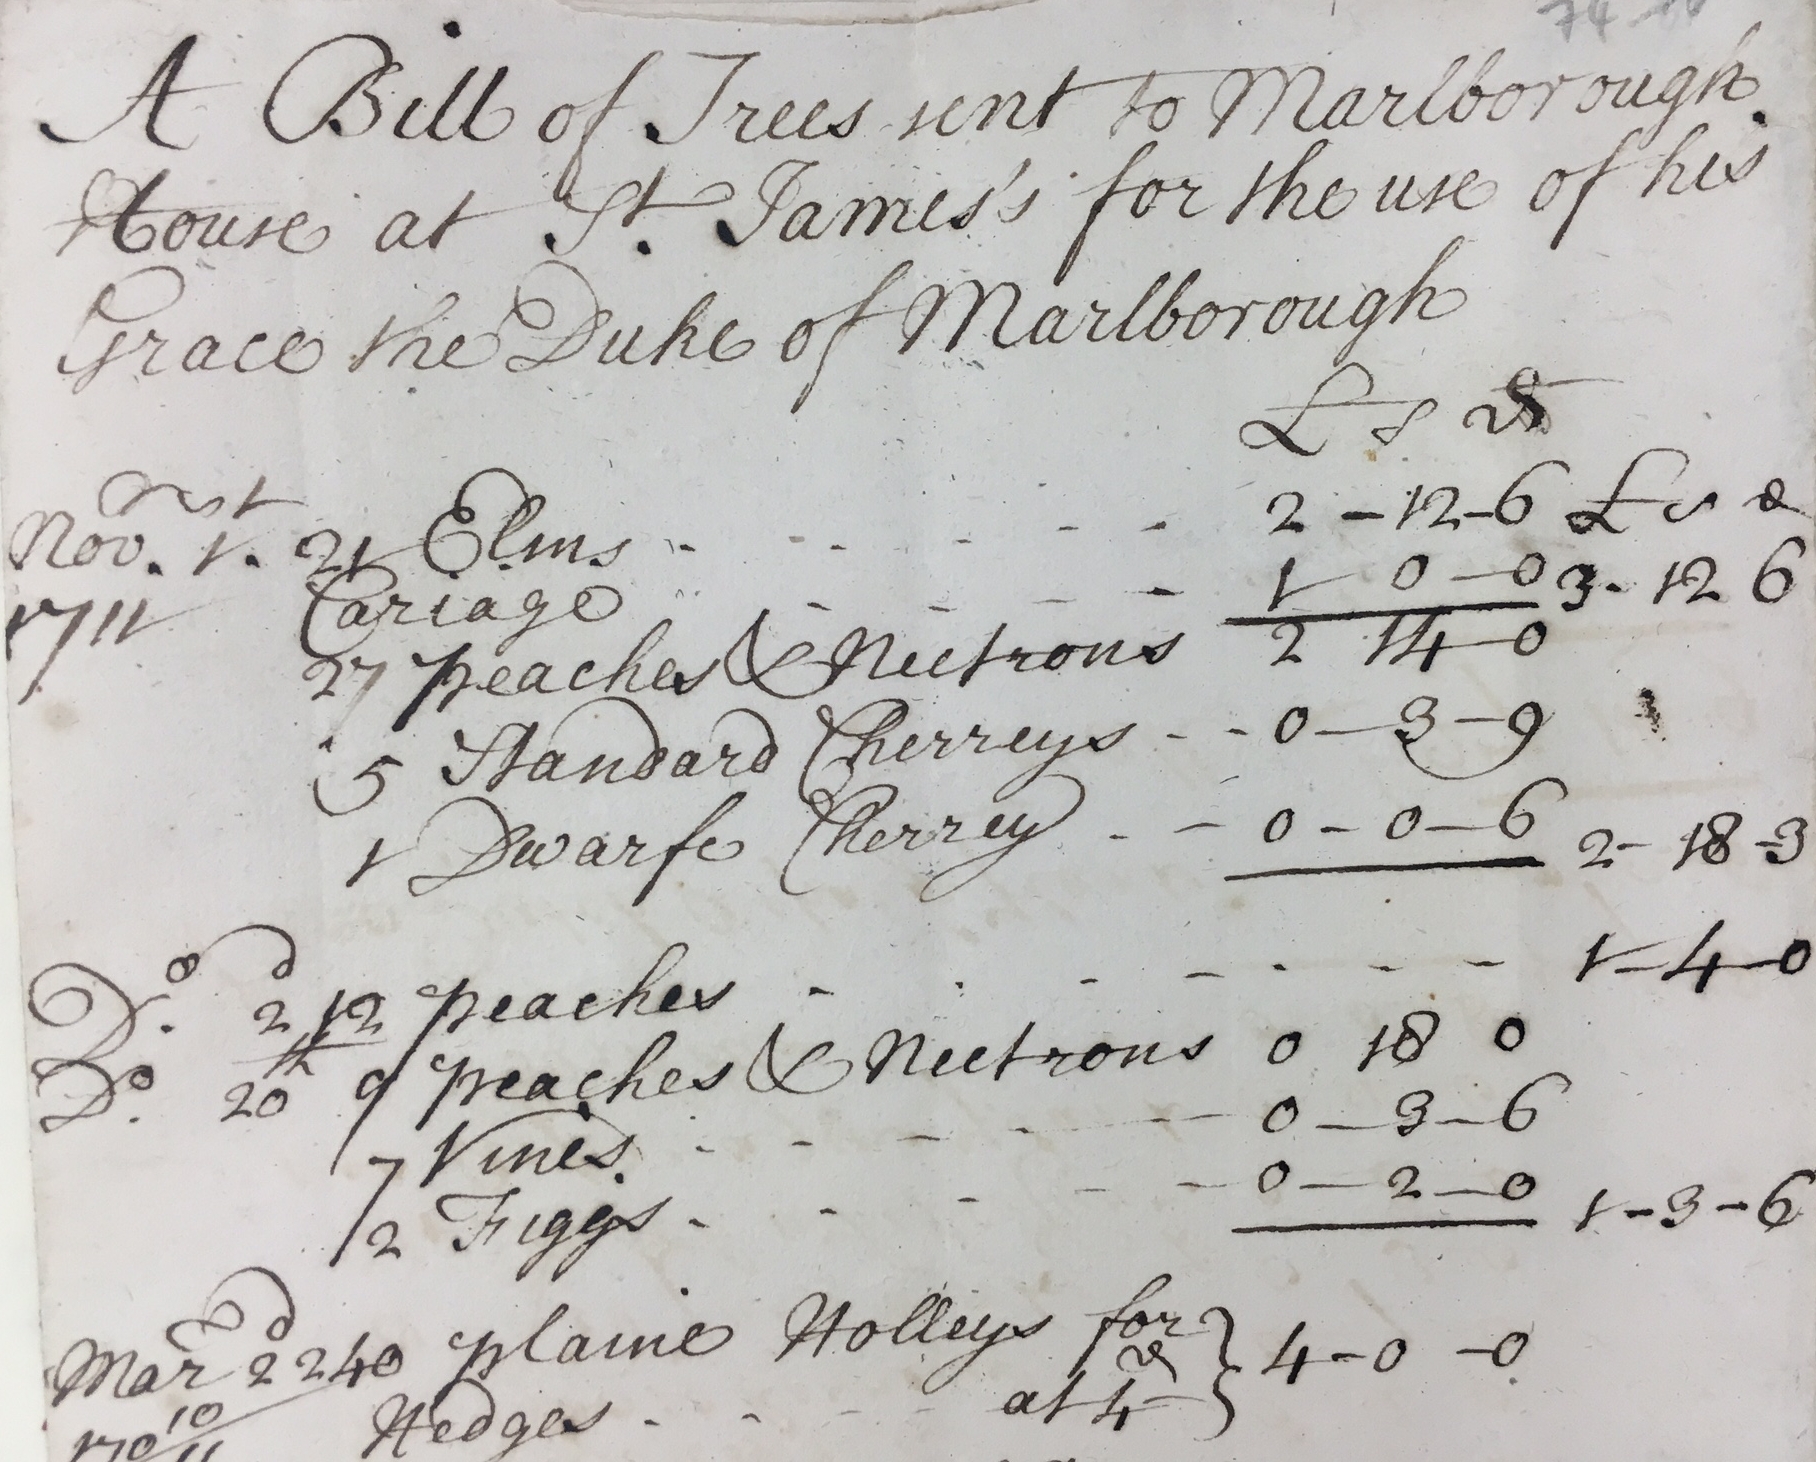 A Bill of Trees sent to Marlborough
House at St. James's for the use of his
Grace the Duke of Marlborough
£ s d
Nov. 1st. 21 Elms - - - - - 2 - 12 - 6 £ s d
1711 Cariage - - - - 1 0 - 0 3 - 12 6
27 peaches & Nectrons 2 14 - 0
5 Standard Cherreys - - 0 - 3 - 9
1 Dwarfe Cherrey - - 0 - 0 - 6 2 - 18 - 3
Do. 2d 12 peaches - - - - - - - 1 - 4 - 0
Do. 20th 9 peaches & Nectrons 0 18 0
7 Vines - - - - - 0 - 3 - 6
2 Figgs - - - - - 0 - 2 - 0 1 - 3 - 6
Mar 2d 240 plaine Holleys for } 4 - 0 - 0
1710/11 Hedges - - - - at 4d }